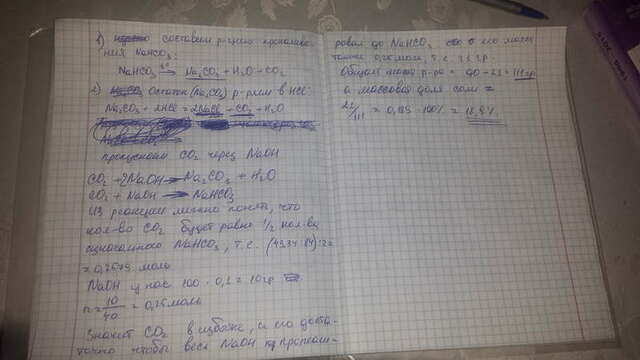 1) составим р-цию прокалива-
ния NaHCO3:
NaHCO3 → Na2CO3 + H2O + CO2
2) Остаток (Na2CO3) р-рили в HCl:
Na2CO3 + 2HCl = 2NaCl + CO2 + H2O
пропускаем CO2 через NaOH
CO2 + 2NaOH → Na2CO3 + H2O
CO2 + NaOH → NaHCO3
Из реакции можно понять, что
кол-во CO2 будет равна 1/2 кол-ва
NaHCO3, т.е. (43,34:84):2=
= 0,2579 моль
NaOH у нас 100 · 0,1 = 10 гр
n = 10/40 = 0,25 моль
Значит CO2 в избытке, и его доста-
точно чтобы весь NaOH
ровал до NaHCO3 его масса
0,25 моль, т.е. 21 гр.
Общая масса р-ра = 111 гр
а массовая доля соли =
21/111 = 0,189 · 100% = 18,9%